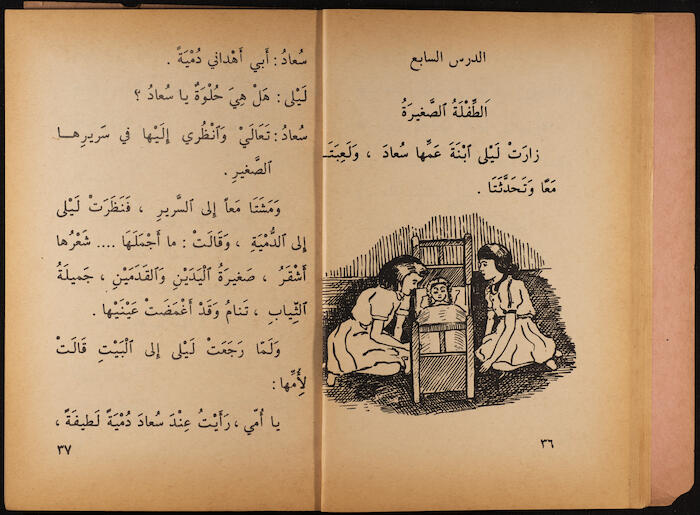 الدرس السابع
اَلطِّفْلَةُ ٱلصَّغيرَةُ
زارَتْ لَيْلى ٱبْنَةَ عَمِّها سُعادَ ، وَلَعِبَتَـ
مَعًا وَتَحَدَّثَتَا .
٣٦
سُعادُ : أَبي أَهْداني دُمْيَةً .
لَيْلى : هَلْ هِيَ حُلْوَةٌ يا سُعادُ ؟
سُعادُ : تَعَالَيْ وَٱنْظُري إِلَيْها في سَريرِهـا
ٱلصَّغيرِ .
وَمَشَتَا مَعاً إِلى ٱلسَّريرِ ، فَنَظَرَتْ لَيْلى
إِلى ٱلدُّمْيَةِ ، وَقَالَتْ : ما أَجْمَلَهَا .... شَعْرُها
أَشْقَرُ ، صَغيرَةُ ٱلْيَدَيْنِ وَٱلْقَدَمَيْنِ ، جَميلَةُ
ٱلثِّيابِ ، تَنامُ وَقَدْ أَغْمَضَتْ عَيْنَيْها .
وَلَمّا رَجَعَتْ لَيْلى إِلى ٱلْبَيْتِ قالَتْ
لِأُمِّها :
يا أُمّي ، رَأَيْتُ عِنْدَ سُعادَ دُمْيَةً لَطيفَةً ،
٣٧